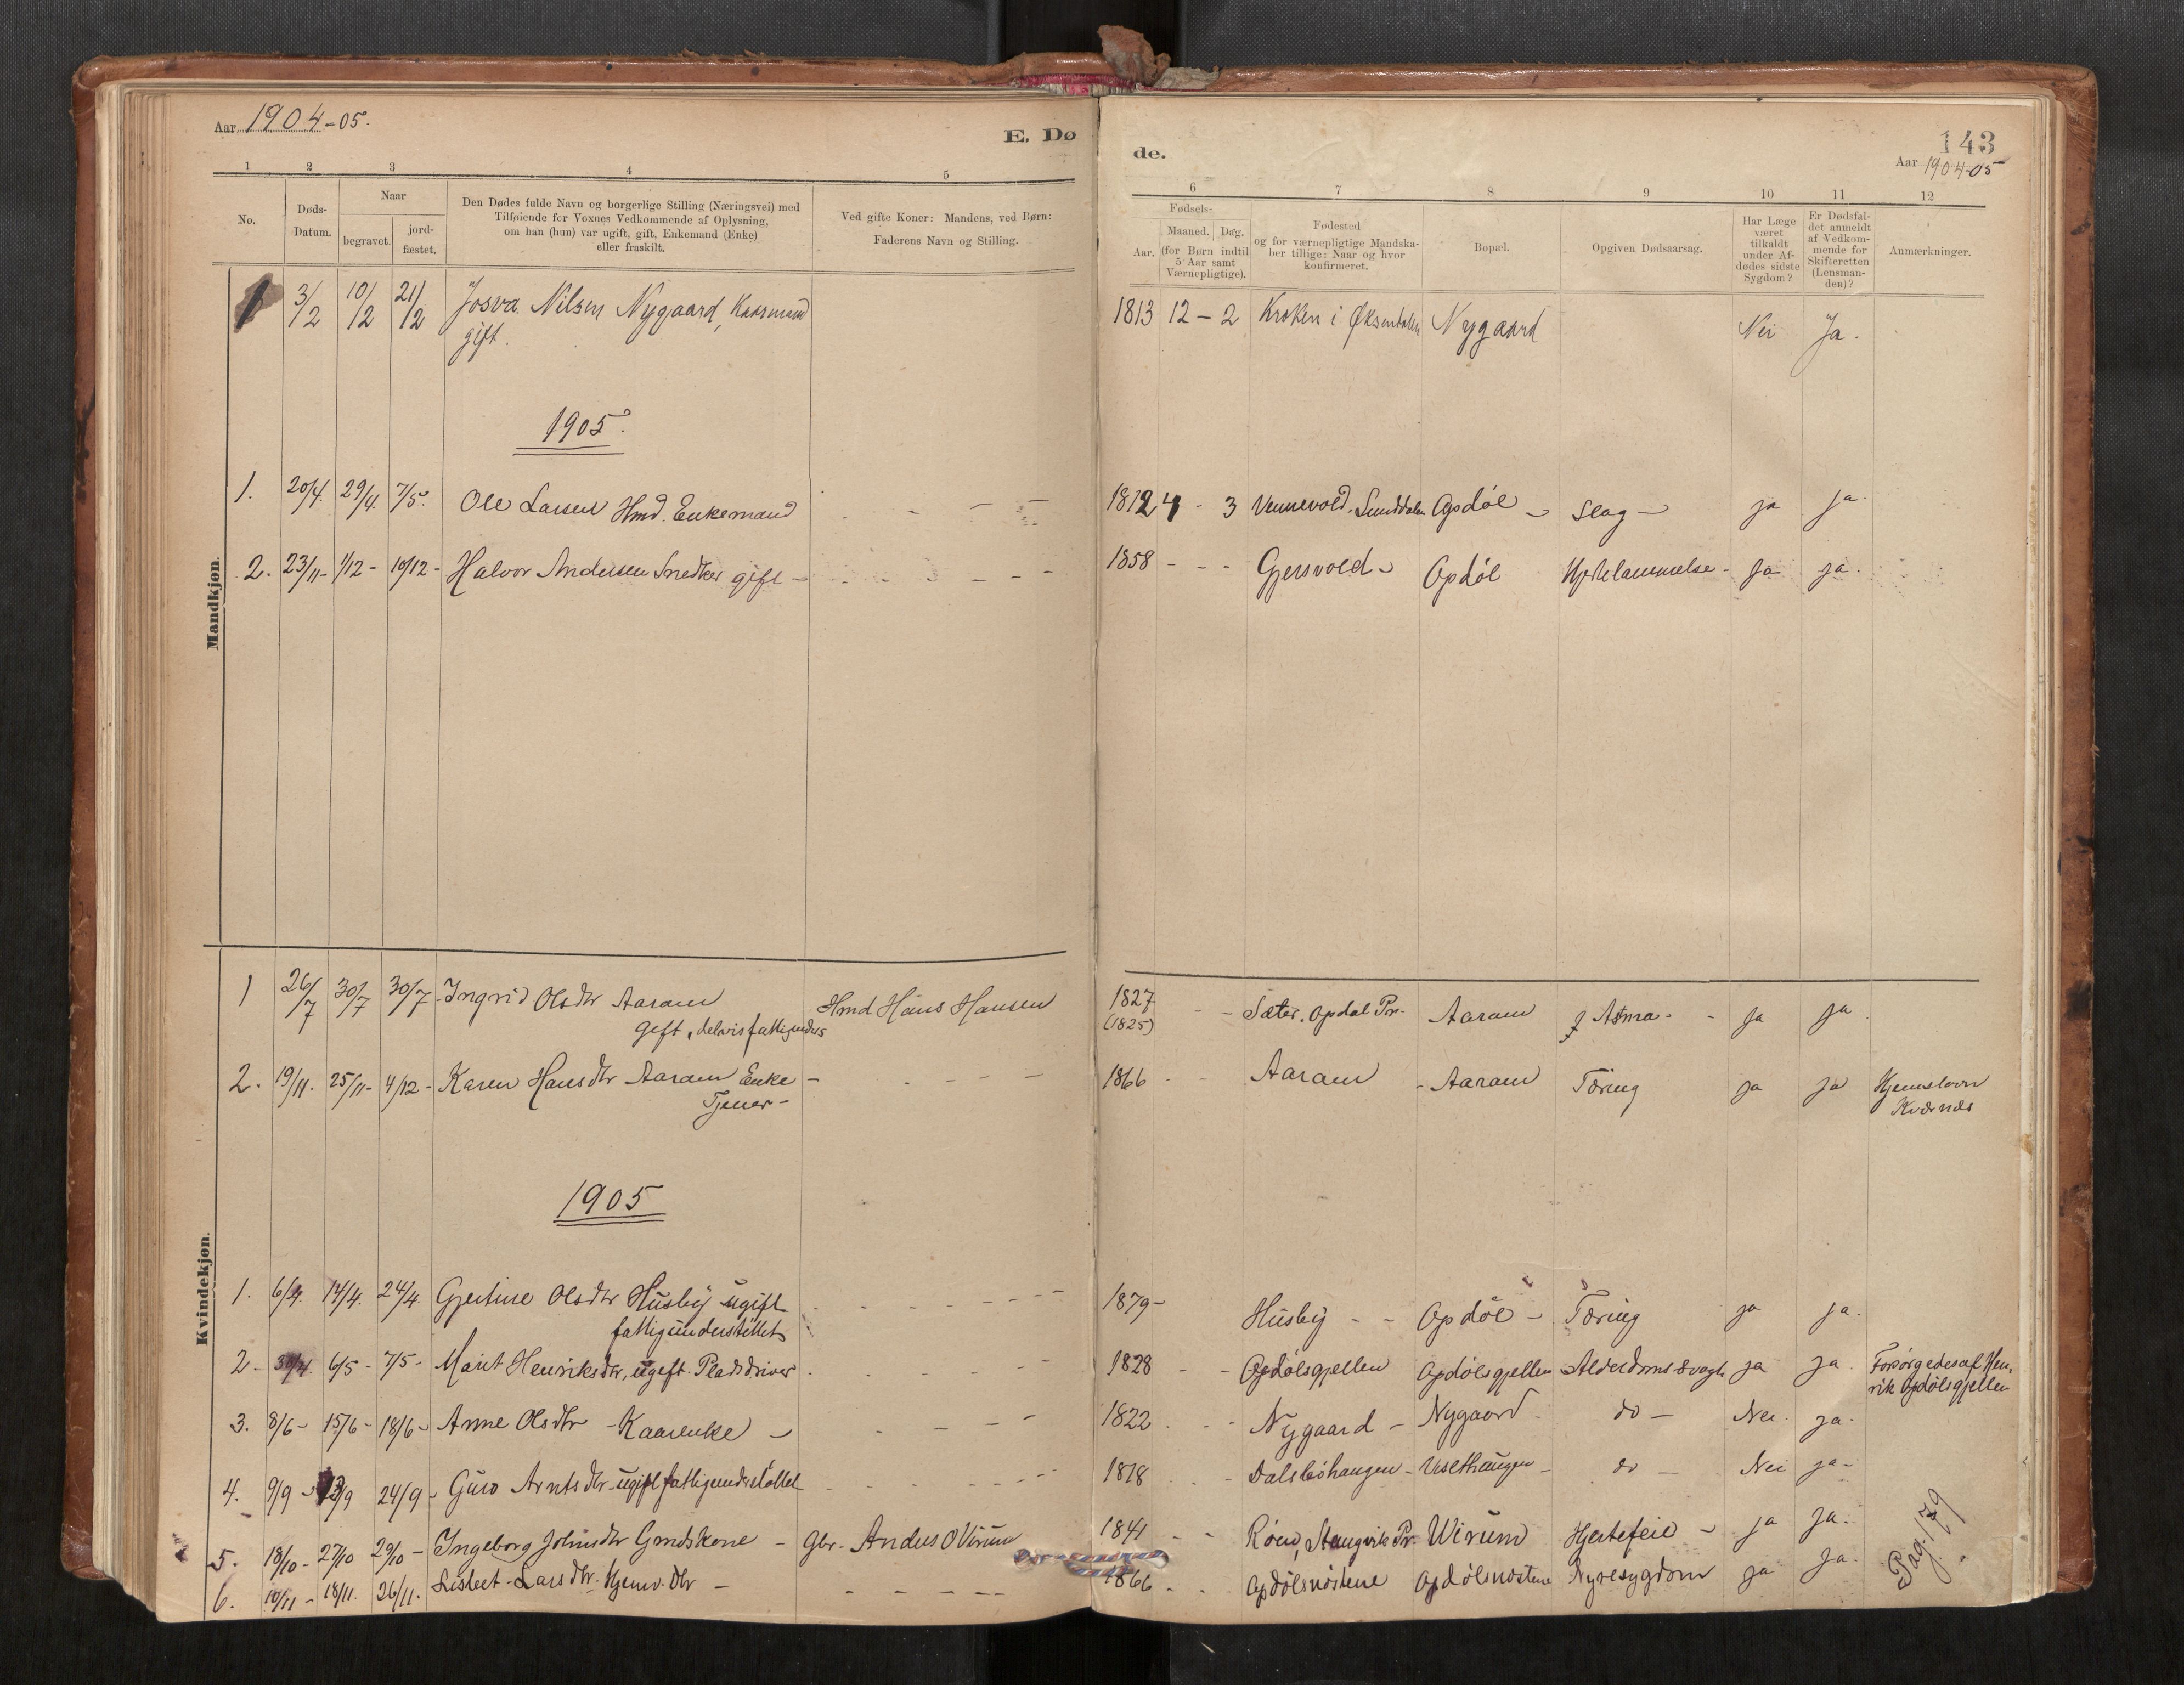 Aar 1904-05.
E. Dø
de.
143
Aar 1904-05
1 2 3 4 5
6 7 8 9 10 11 12
No.
Døds-
Datum.
Naar
begravet.
jord-
fæstet.
Den Dødes fulde Navn og borgerlige Stilling (Næringsvei) med
Tilføiende for Voxnes Vedkommende af Oplysning,
om han (hun) var ugift, gift, Enkemand (Enke)
eller fraskilt.
Ved gifte Koner: Mandens, ved Børn:
Faderens Navn og Stilling.
Fødsels-
Aar.
Maaned. Dag.
(for Børn indtil
5 Aar samt
Værnepligtige).
Fødested
og for værnepligtige Mandska-
ber tillige: Naar og hvor
konfirmeret.
Bopæl.
Opgiven Dødsaarsag.
Har Læge
været
tilkaldt
under Af-
dødes sidste
Sygdom?
Er Dødsfal-
det anmeldt
af Vedkom-
mende for
Skifteretten
(Lensman-
den)?
Anmærkninger.
Mandkjøn.
1 3/12 10/12 21/12 Josva Nilsen Nygaard, Kaarmand 1813 12 - 2 Kroken i Øksendalen Nygaard Nei Ja.
gift.
1905.
1. 20/4. 29/4. 7/5. Ole Larsen Hmd. Enkemand - - - 1812 4 - 3 Vennevold, Sunddalen Opdøl - Slag - ja ja.
2. 23/11- 1/12- 10/12- Halvor Andersen Snedker gift - - - - - - 1858 - - - Gjersvold - Opdøl Hjertelammelse - ja ja.
Kvindekjøn.
1 26/7 30/7 30/7- Ingrid Olsdtr Aaram Hmd Hans Hansen 1827 - - Sæter. Opdal Pr. - Aaram Astma - - ja ja
gift, delvis fattigunders (1825)
2. 19/11. 25/11- 4/12- Karen Hansdtr Aaram Enke - - - - - 1866 - - Aaram - Aaram Tæring ja ja Hjemslovn
Tjener - Kværnæs
1905
1. 6/4. 14/4. 24/4 Gjertine Olsdtr Husby ugift - - - - - - 1879- Husby - - Opdøl - Tæring ja ja.
fattigunderstøttet
2. 30/4. 6/5- 7/5- Marit Henriksdtr, ugift. Pladsdriver. - - - - 1828 - - Opdølsgjellen Opdølsgjellen Alderdomssvagh ja ja. Forsørgedes af Hen-
rik Opdølsgjellen
3. 8/6- 15/6- 18/6- Anne Olsdtr - Kaarenke - - - - - 1822 - - Nygaard - Nygaard - do - Nei. ja.
4. 9/9- 13/9 24/9- Guro Arntsdtr. ugift fattigunderstøttet - - - - 1818 - - Dalsbøhaugen - Viselhaugen - do - Nei ja-
5. 18/10- 27/10 29/10- Ingeborg Johnsdtr Gmdskone - Gbr. Anders O Virum 1841 - - Røen, Stangvik Pr. Wirum Hjertefeil - ja ja.
6. 10/11- 18/11. 26/11. Lisbet Larsdtr. Hjemv. Dtr - - - - - 1866 - - Opdølsnøstene Opdølsnøstene Nyresygdom ja ja.
Pag. 179